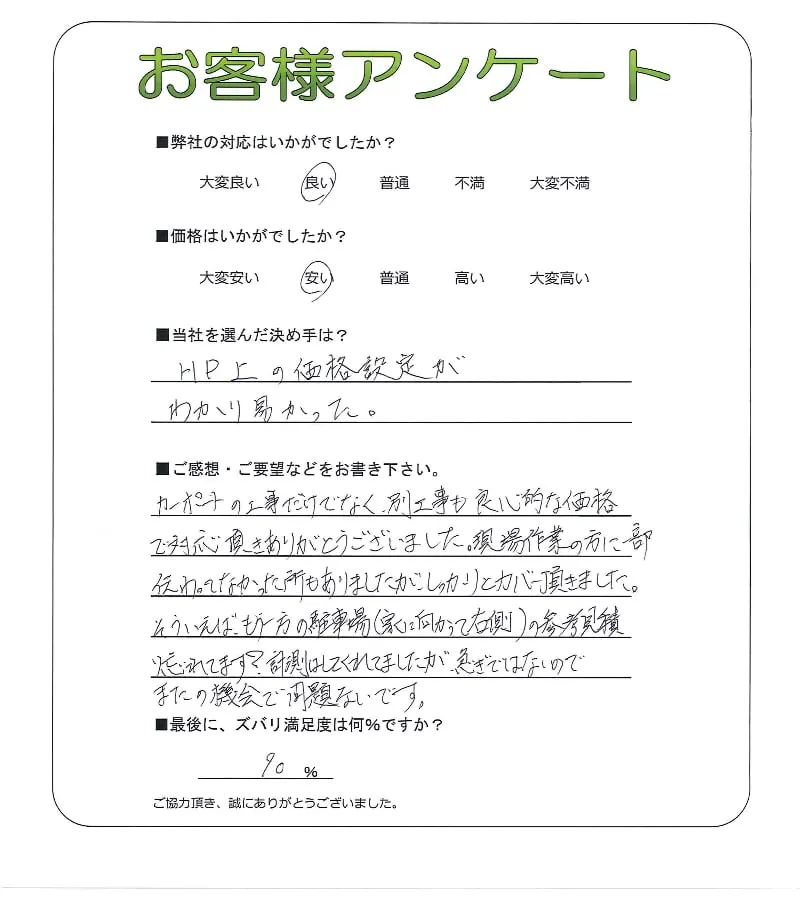 お客様アンケート
■弊社の対応はいかがでしたか？
大変良い 良い 普通 不満 大変不満
■価格はいかがでしたか？
大変安い 安い 普通 高い 大変高い
■当社を選んだ決め手は？
HP上の価格設定が
わかり易かった。
■ご感想・ご要望などをお書き下さい。
カーポートの工事だけでなく、別工事も良心的な価格
で対応頂きありがとうございました。現場作業の方に一部
伝わってなかった所もありましたがしっかりとカバー頂きました。
そういえば、もう一方の駐車場(家に向かって右側)の参考見積
忘れてます？計測はしてくれてましたが、急ぎではないので
またの機会で問題ないです。
■最後に、ズバリ満足度は何％ですか？
90 %
ご協力頂き、誠にありがとうございました。